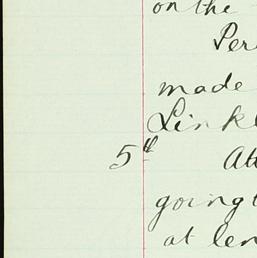 on the
Per
made
Linkl
5th At
going t
at len